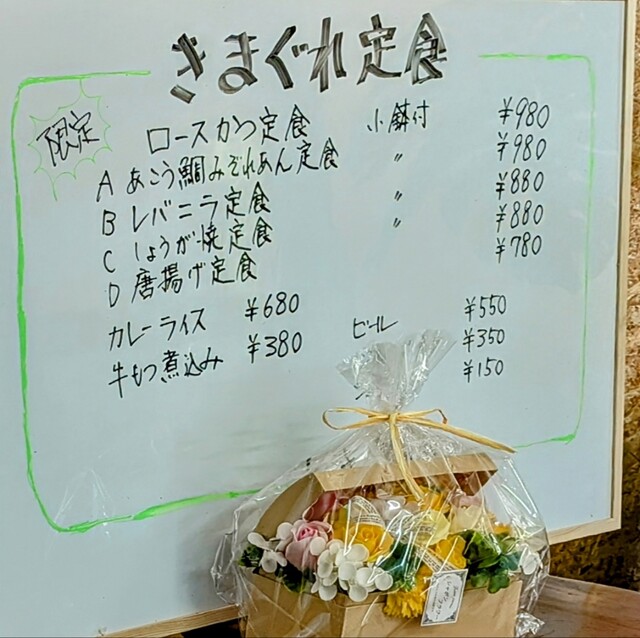 きまぐれ定食
限定 ロースかつ定食 小鉢付 ¥980
A あこう鯛みぞれあん定食 〃 ¥980
B レバニラ定食 〃 ¥880
C しょうが焼定食 〃 ¥880
D 唐揚げ定食 ¥780
カレーライス ¥680 ビール ¥550
牛もつ煮込み ¥380 ¥350
¥150